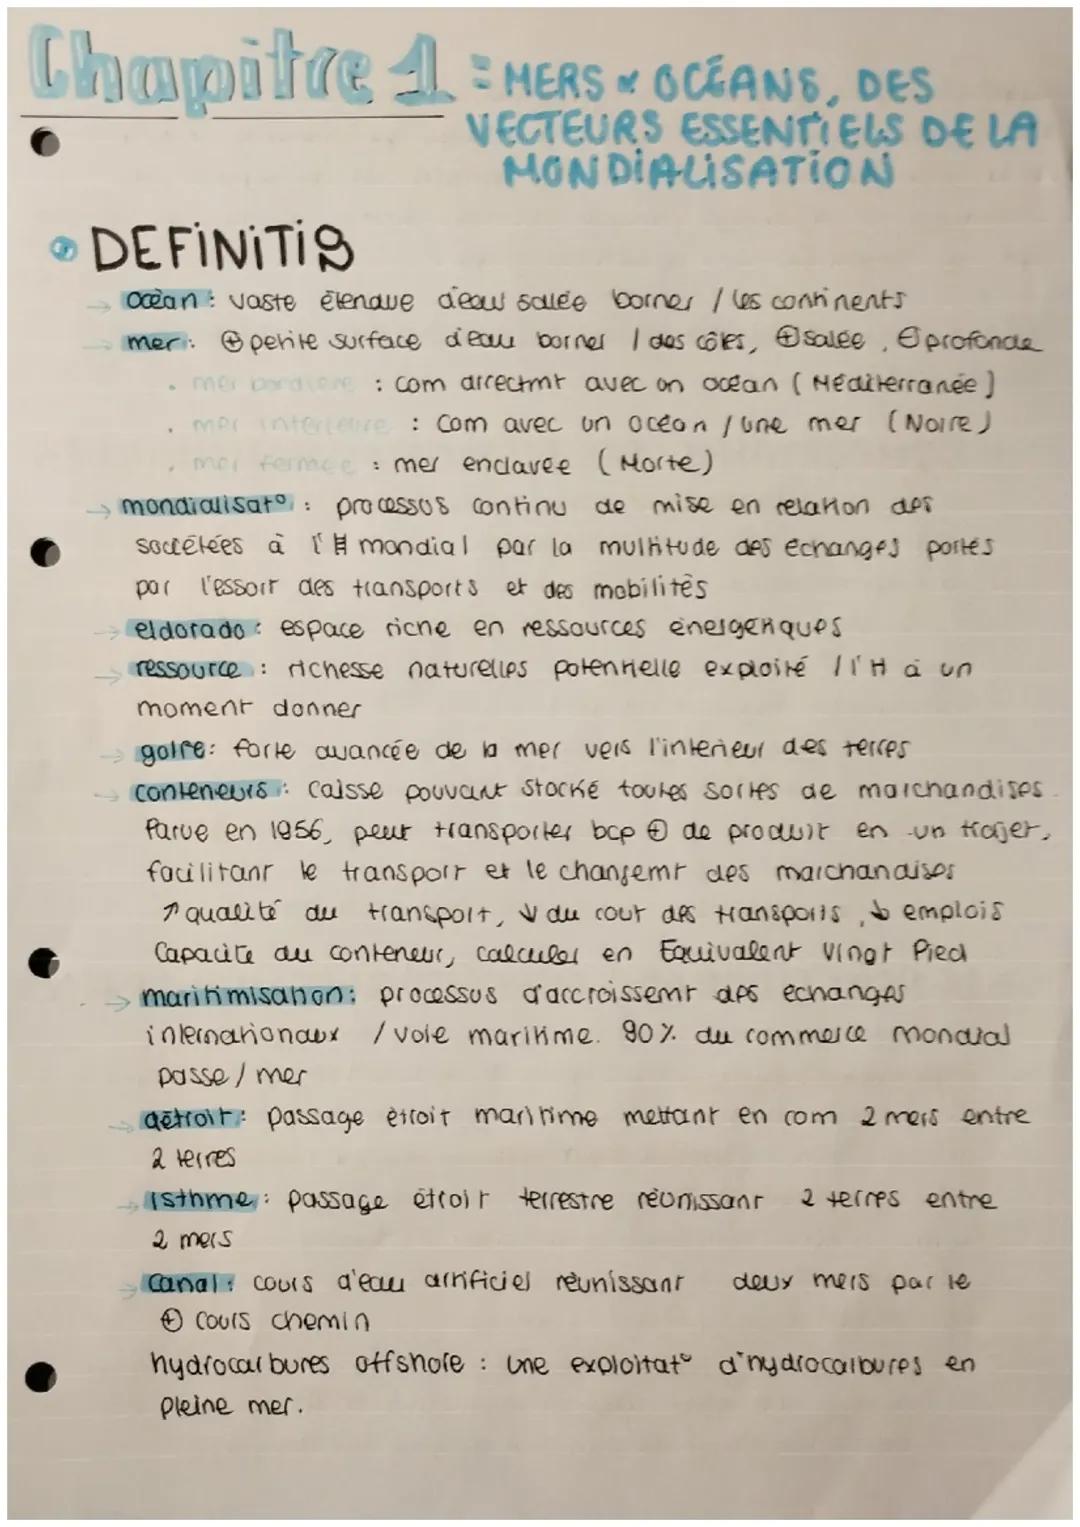 Chapitre 1 = MERS & OCÉANS, DES
VECTEURS ESSENTIELS DE LA
MONDIALISATION
DEFINITIS
→ océan : vaste étendue d'eau salée borner / les continents
→ mer : ⊕ petite surface d'eau borner / des côtes, ⊕ salée, ⊖ profonde
• mer bordière : com directmt avec un océan (Méditerranée)
• mer intérieure : com avec un océan / une mer (Noire)
• mer fermée : mer enclavée (Morte)
→ mondialisat° : processus continu de mise en relation des
sociétées à l' mondial par la multitude des échanges portés
par l'essort des transports et des mobilités
→ eldorado : espace riche en ressources énergétiques
→ ressource : richesse naturelles potentielle exploité / l'H à un
moment donner
→ golfe : forte avancée de la mer vers l'intérieur des terres
→ conteneurs : caisse pouvant stocké toutes sortes de marchandises.
Parue en 1956, peut transporter bcp ⊕ de produit en un trajet,
facilitant le transport et le changemt des marchandises
↗ qualité du transport, ↓ du cout des transports, ↓ emplois
Capacité du conteneur, calculer en Equivalent Vingt Pied
→ maritimisation : processus d'accroissemt des échanges
internationaux / voie maritime. 90% du commerce mondial
passe / mer
→ détroit : passage étroit maritime mettant en com 2 mers entre
2 terres
→ isthme : passage étroit terrestre réunissant 2 terres entre
2 mers
→ canal : cours d'eau artificiel réunissant deux mers par le
⊕ cours chemin
hydrocarbures offshore : une exploitat° d'hydrocarbures en
pleine mer.